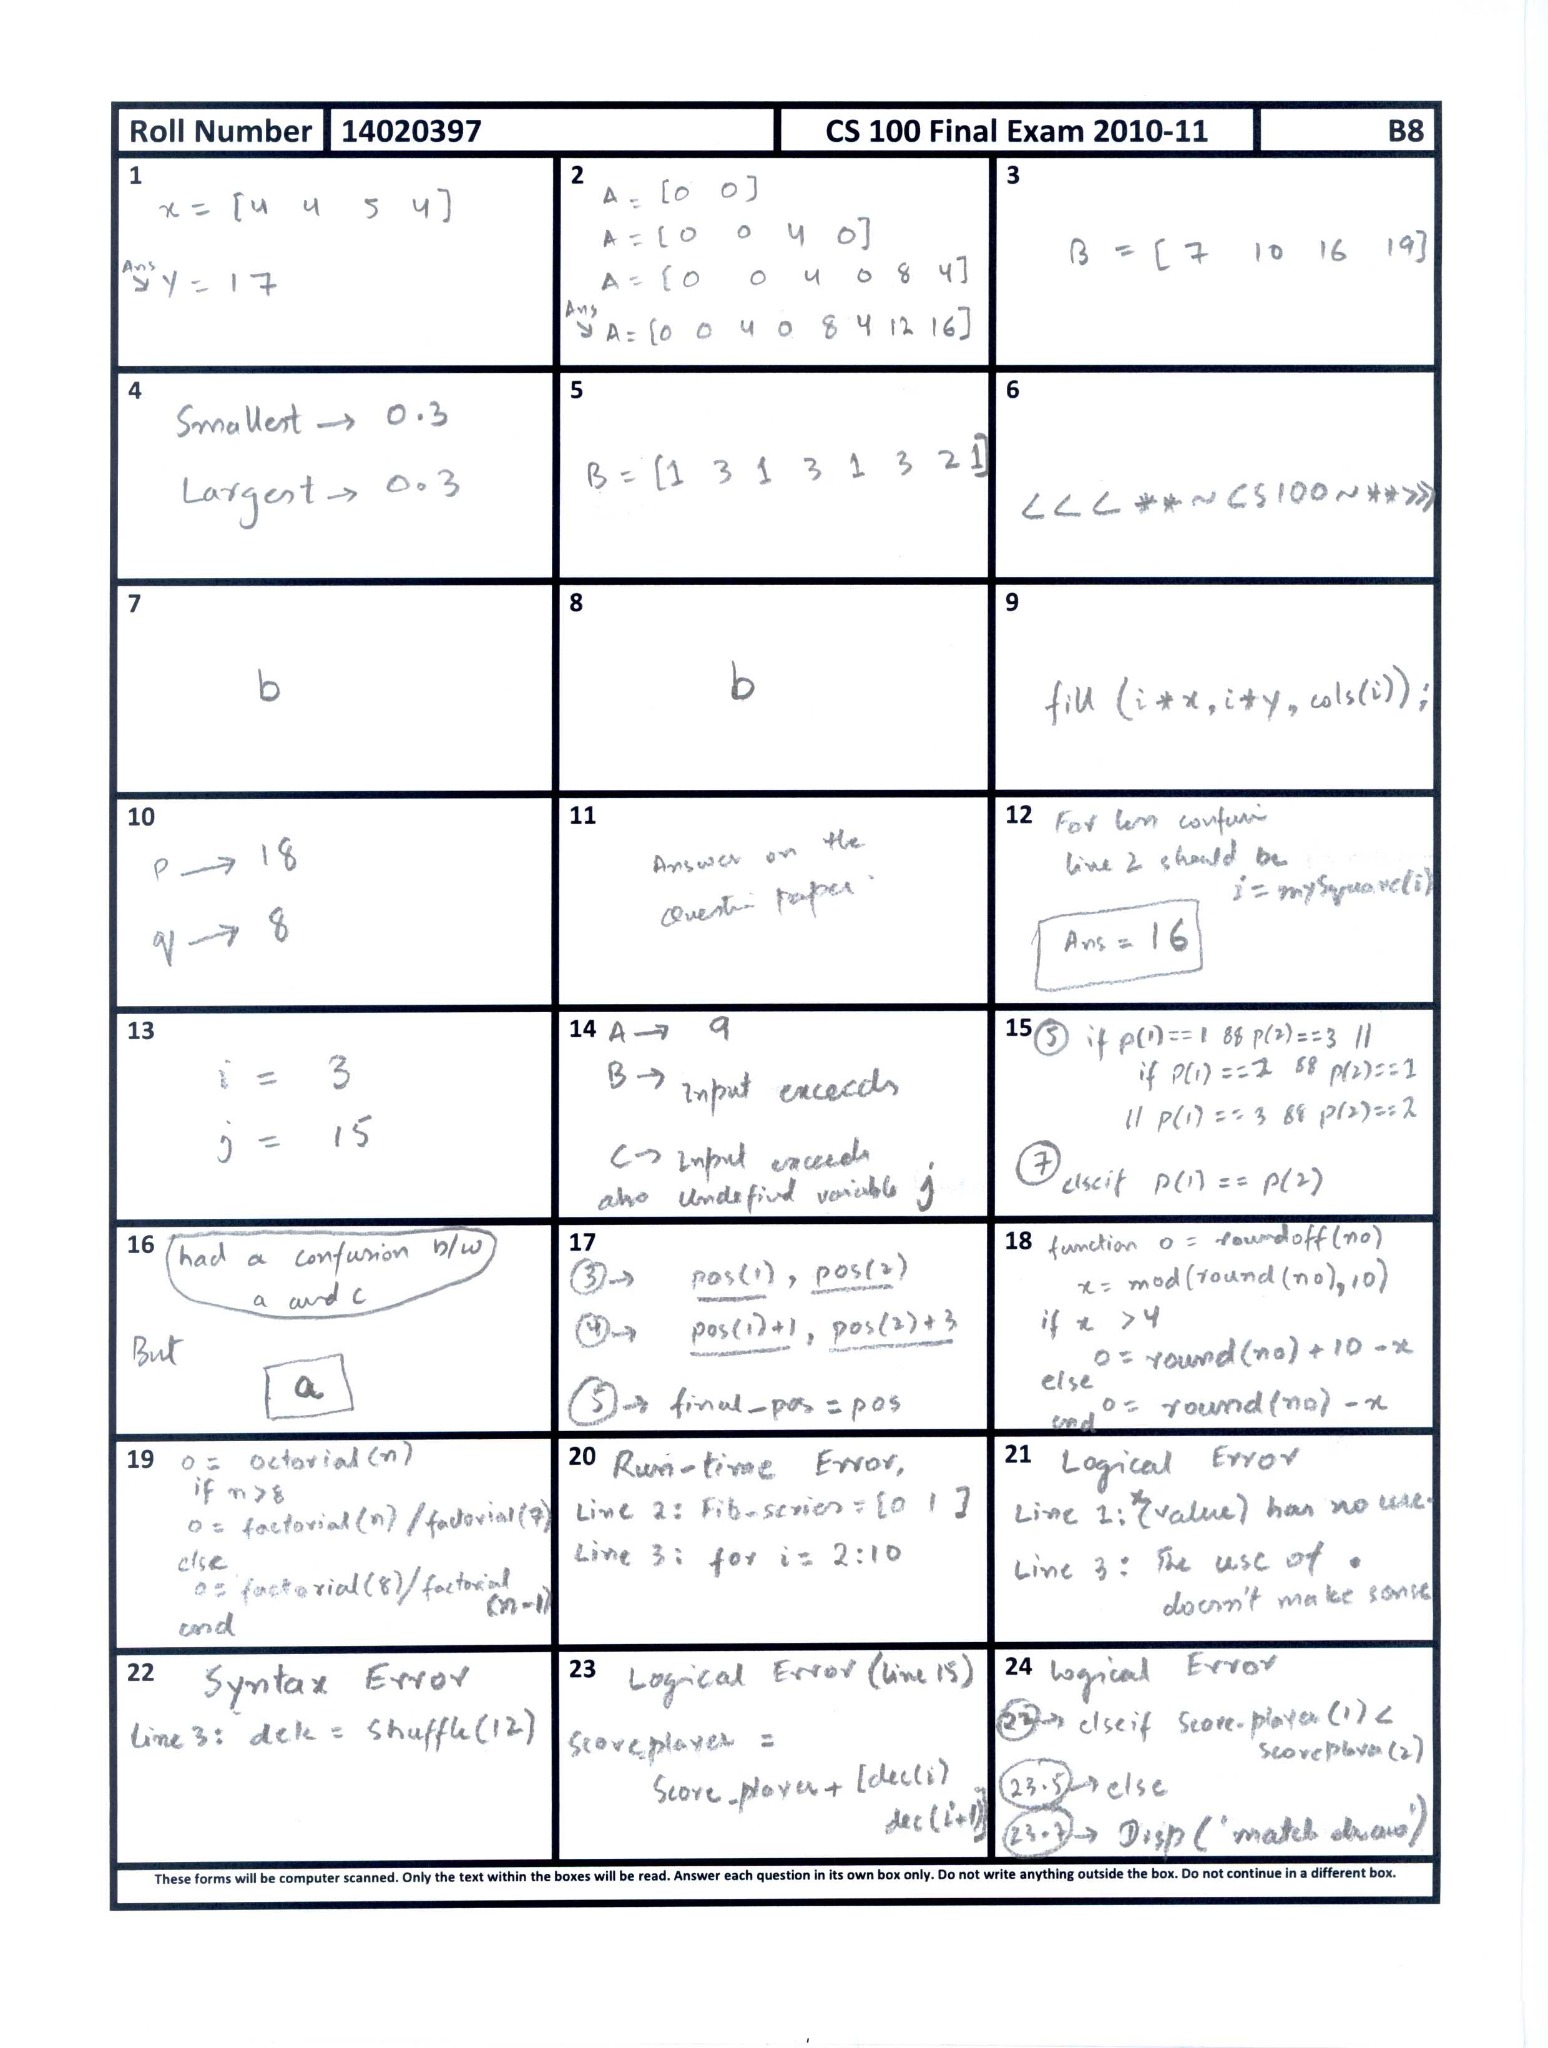 Roll Number 14020397 CS 100 Final Exam 2010-11 B8
1
x = [4 4 5 4]
Ans
↘ y = 17
2
A = [0 0]
A = [0 0 4 0]
A = [0 0 4 0 8 4]
Ans
↘ A = [0 0 4 0 8 4 12 16]
3
B = [7 10 16 19]
4
Smallest → 0.3
Largest → 0.3
5
B = [1 3 1 3 1 3 2 1]
6
<<<**~CS100~**>>>
7
b
8
b
9
fill (i*x, i*y, cols(i));
10
P → 18
q → 8
11
Answer on the
Questin paper.
12 For less confusi
line 2 should be
i = mySquare(i)
Ans = 16
13
i = 3
j = 15
14 A → 9
B → Input exceeds
C → Input exceeds
also undefind variable j
15 (5) if p(1)==1 && p(2)==3 ||
if p(1)==2 && p(2)==1
|| p(1)==3 && p(2)==2
(7) elseif p(1) == p(2)
16 had a confusion b/w
a and c
But
a
17
(3) → pos(1), pos(2)
(4) → pos(1)+1, pos(2)+3
(5) → final_pos = pos
18 function o = roundoff(no)
x = mod(round(no),10)
if x >4
o = round(no) + 10 - x
else
o = round(no) - x
end
19 o = octorial(n)
if n>8
o = factorial(n)/factorial(7)
else
o = factorial(8)/factorial
(n-1)
end
20 Run-time Error,
Line 2: Fib-series = [0 1]
Line 3: for i = 2:10
21 Logical Error
Line 1: *(value) has no use.
Line 3: The use of .
doesn't make sense
22 Syntax Error
Line 3: deck = shuffle(12)
23 Logical Error (line 15)
scoreplayer =
Score_player + [dec(i)
dec(i+1)]
24 Logical Error
(22) → elseif Score-player(1) <
scoreplayer(2)
(23.5) → else
(23.7) → Disp('match draw')
These forms will be computer scanned. Only the text within the boxes will be read. Answer each question in its own box only. Do not write anything outside the box. Do not continue in a different box.